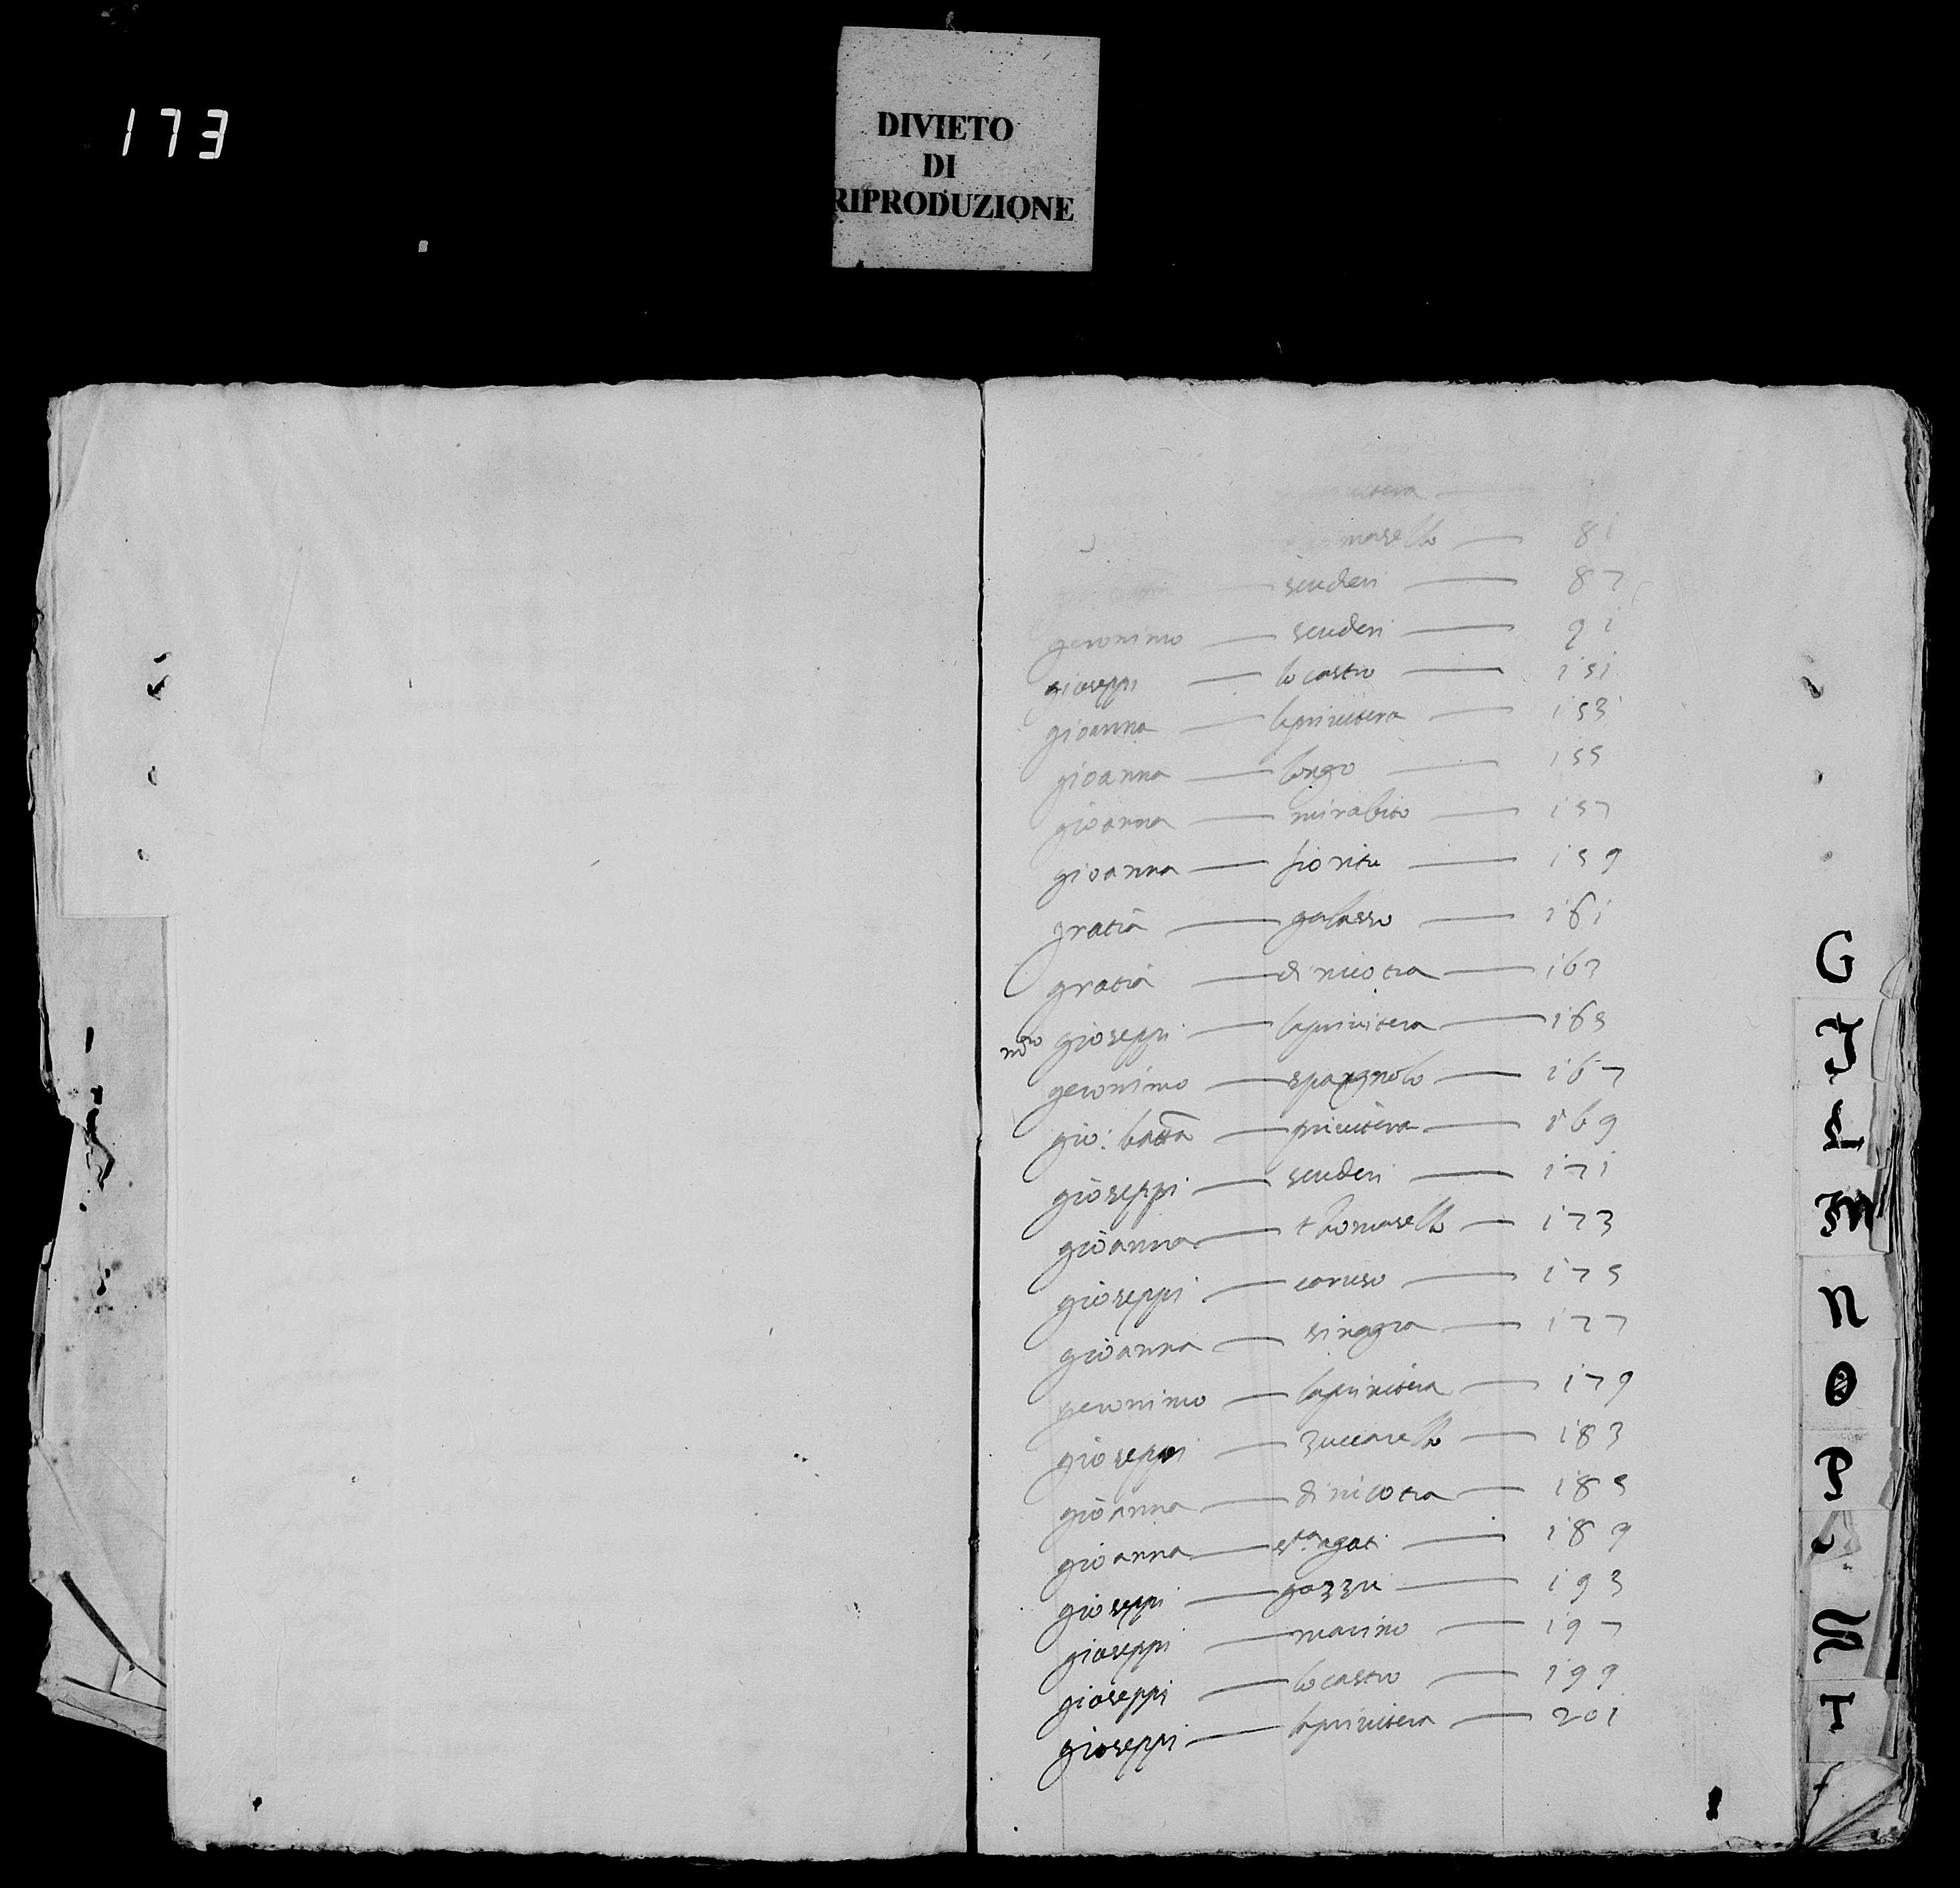 173
DIVIETO
DI
RIPRODUZIONE
81
scuderi — 87
geronimo — scuderi — 91
gioseppi — lo castro — 151
gioanna — laprivitera — 153
gioanna — longo — 155
gioanna — mirabito — 157
gioanna — fioritu — 159
gratia — galasso — 161
gratia — di nicotra — 163
gioseppi — laprivitera — 165
geronimo — spagnolo — 167
gio: batta — privitera — 169
gioseppi — scuderi — 171
gioanna — thomasello — 173
gioseppi — caruso — 175
gioanna — sinagra — 177
geronimo — laprivitera — 179
gioseppi — zuccarello — 183
gioanna — di nicotra — 185
gioanna — sta agati — 189
gioseppi — gazzu — 193
gioseppi — marino — 197
gioseppi — lo castro — 199
gioseppi — laprivitera — 201
G
L
M
N
O
P
R
T